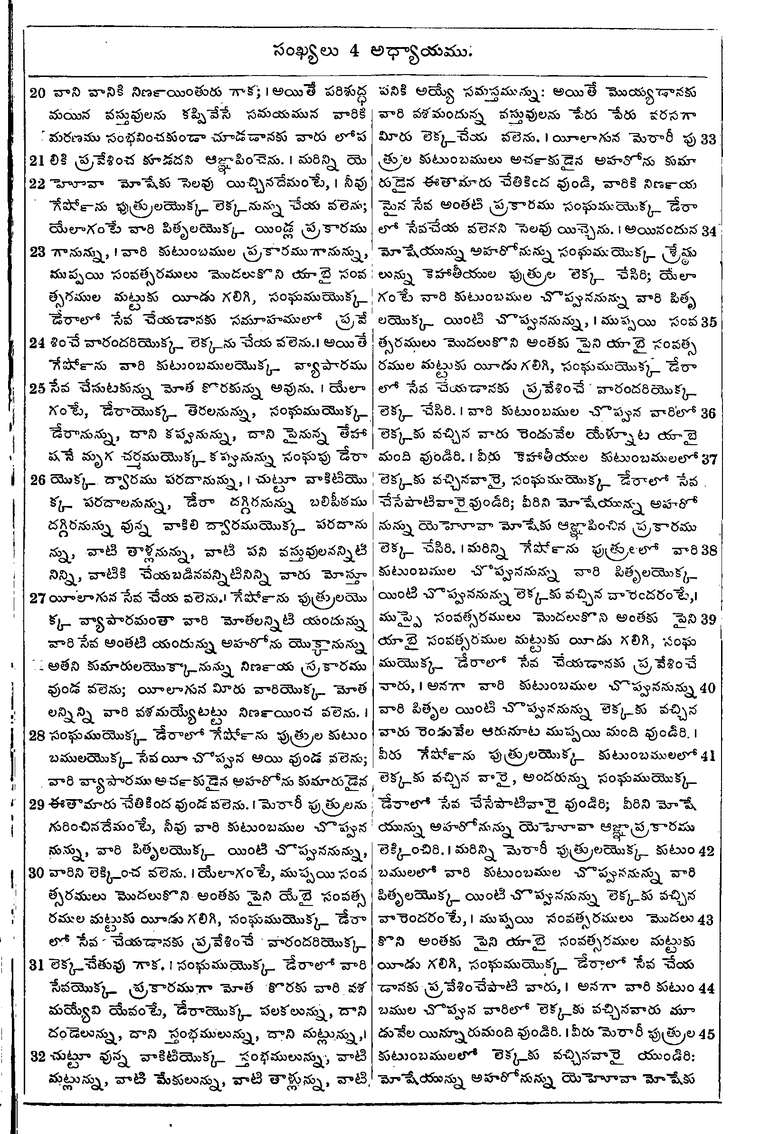 సంఖ్యలు 4 అధ్యాయము.
20 వాని వానికి నిర్ణయింతురు గాక; । అయితే పరిశుద్ధ
మయిన వస్తువులను కప్పివేసే సమయమున వారికి
మరణము సంభవించకుండా చూడడానకు వారు లోప
21 లికి ప్రవేశించ కూడదని ఆజ్ఞాపించెను. । మరిన్ని యె
22 హెూవా మోషేకు సెలవు యిచ్చినదేమంటే, । నీవు
గేర్షోను పుత్రులయొక్క లెక్కనున్ను చేయ వలెను;
యేలాగంటే వారి పితృలయొక్క యిండ్ల ప్రకారము
23 గానున్ను, । వారి కుటుంబముల ప్రకారముగానున్ను,
ముప్పయి సంవత్సరములు మొదలుకొని యాభై సంవ
త్సరముల మట్టుకు యీడు గలిగి, సంఘముయొక్క
డేరాలో సేవ చేయడానకు సమూహములో ప్రవే
24 శించే వారందరియొక్క లెక్కను చేయ వలెను. । అయితే
గేర్షోను వారి కుటుంబములయొక్క వ్యాపారము
25 సేవ చేసుటకున్ను మోత కొరకున్ను అవును. । యేలా
గంటే, డేరాయొక్క తెరలనున్ను, సంఘముయొక్క
డేరానున్ను, దాని కప్పునున్ను, దాని పైనున్న తేహా
షనే మృగ చర్మముయొక్క కప్పునున్ను సంఘపు డేరా
26 యొక్క ద్వారము పరదానున్ను, । చుట్టూ వాకిటియొ
క్క పరదాలనున్ను, డేరా దగ్గిరనున్ను బలిపీఠము
దగ్గిరనున్ను వున్న వాకిలి ద్వారముయొక్క పరదాను
న్ను, వాటి తాళ్లనున్ను, వాటి పని వస్తువులనన్నిటి
నిన్ని, వాటికి చేయబడినవన్నిటినిన్ని వారు మోస్తూ
27 యీలాగున సేవ చేయ వలెను. । గేర్షోను పుత్రులయొ
క్క వ్యాపారమంతా వారి మోతలన్నిటి యందున్ను
వారి సేవ అంతటి యందున్ను అహరోను యొక్కానున్ను
అతని కుమారులయొక్కానున్ను నిర్ణయ ప్రకారము
వుండ వలెను; యీలాగున మీరు వారియొక్క మోత
లన్నిన్ని వారి వశమయ్యేటట్టు నిర్ణయించ వలెను. ।
28 సంఘముయొక్క డేరాలో గేర్షోను పుత్రుల కుటుం
బములయొక్క సేవ యీ చొప్పున అయి వుండ వలెను;
వారి వ్యాపారము అర్చకుడైన అహరోను కుమారుడైన
29 ఈతామారు చేతికింద వుండ వలెను. । మెరారీ పుత్రులను
గురించినదేమంటే, నీవు వారి కుటుంబముల చొప్పున
నున్ను, వారి పితృలయొక్క యింటి చొప్పుననున్ను,
30 వారిని లెక్కించ వలెను. । యేలాగంటే, ముప్పయి సంవ
త్సరములు మొదలుకొని అంతకు పైని యేభై సంవత్స
రముల మట్టుకు యీడు గలిగి, సంఘముయొక్క డేరా
లో సేవ చేయడానకు ప్రవేశించే వారందరియొక్క
31 లెక్కచేతువు గాక. । సంఘముయొక్క డేరాలో వారి
సేవయొక్క ప్రకారముగా మోత కొరకు వారి వశ
మయ్యేవి యేవంటే, డేరాయొక్క పలకలున్ను, దాని
దండెలున్ను, దాని స్తంభములున్ను, దాని మట్లున్ను, ।
32 చుట్టూ వున్న వాకిటియొక్క స్తంభములున్ను, వాటి
మట్లున్ను, వాటి మేకులున్ను, వాటి తాళ్లున్ను, వాటి
పనికి అయ్యే సమస్తమున్ను: అయితే మొయ్యడానకు
వారి వశమందున్న వస్తువులను పేరు పేరు వరసగా
మీరు లెక్కచేయ వలెను. । యీలాగున మెరారీ పు 33
త్రుల కుటుంబములు అర్చకుడైన అహరోను కుమా
రుడైన ఈతామారు చేతికింద వుండి, వారికి నిర్ణయ
మైన సేవ అంతటి ప్రకారము సంఘముయొక్క డేరా
లో సేవచేయ వలెనని సెలవు యిచ్చెను. । అయినందున 34
మోషేయున్ను అహరోనున్ను సంఘముయొక్క శ్రేష్ఠు
లున్ను కెహాతీయుల పుత్రుల లెక్క చేసిరి; యేలా
గంటే వారి కుటుంబముల చొప్పుననున్ను వారి పితృ
లయొక్క యింటి చొప్పుననున్ను, । ముప్పయి సంవ 35
త్సరములు మొదలుకొని అంతకు పైని యాభై సంవత్స
రముల మట్టుకు యీడు గలిగి, సంఘముయొక్క డేరా
లో సేవ చేయడానకు ప్రవేశించే వారందరియొక్క
లెక్క చేసిరి. । వారి కుటుంబముల చొప్పున వారిలో 36
లెక్కకు వచ్చిన వారు రెండువేల యేళ్నూట యాభై
మంది వుండిరి. । వీరు కెహాతీయుల కుటుంబములలో 37
లెక్కకు వచ్చినవారై, సంఘముయొక్క డేరాలో సేవ
చేసేపాటివారై వుండిరి; వీరిని మోషేయున్ను అహరో
నున్ను యెహెూవా మోషేకు ఆజ్ఞాపించిన ప్రకారము
లెక్క చేసిరి. । మరిన్ని గేర్షోను పుత్రులలో వారి 38
కుటుంబముల చొప్పుననున్ను వారి పితృలయొక్క
యింటి చొప్పుననున్ను లెక్కకు వచ్చిన వారెందరంటే, ।
ముప్పై సంవత్సరములు మొదలుకొని అంతకు పైని 39
యాభై సంవత్సరముల మట్టుకు యీడు గలిగి, సంఘ
ముయొక్క డేరాలో సేవ చేయడానకు ప్రవేశించే
వారు, । అనగా వారి కుటుంబముల చొప్పుననున్ను 40
వారి పితృల యింటి చొప్పుననున్ను లెక్కకు వచ్చిన
వారు రెండువేల ఆరునూట ముప్పయి మంది వుండిరి. ।
వీరు గేర్షోను పుత్రులయొక్క కుటుంబములలో 41
లెక్కకు వచ్చిన వారై, అందరున్ను సంఘముయొక్క
డేరాలో సేవ చేసేపాటివారై వుండిరి; వీరిని మోషే
యున్ను అహరోనున్ను యెహెూవా ఆజ్ఞాప్రకారము
లెక్కించిరి. । మరిన్ని మెరారీ పుత్రులయొక్క కుటుం 42
బములలో వారి కుటుంబముల చొప్పుననున్ను వారి
పితృలయొక్క యింటి చొప్పుననున్ను లెక్కకు వచ్చిన
వారెందరంటే, । ముప్పయి సంవత్సరములు మొదలు 43
కొని అంతకు పైని యాభై సంవత్సరముల మట్టుకు
యీడు గలిగి, సంఘముయొక్క డేరాలో సేవ చేయ
డానకు ప్రవేశించేపాటి వారు, । అనగా వారి కుటుం 44
బముల చొప్పున వారిలో లెక్కకు వచ్చినవారు మూ
డువేల యిన్నూరుమంది వుండిరి. । వీరు మెరారీ పుత్రుల 45
కుటుంబములలో లెక్కకు వచ్చినవారై యుండిరి:
మోషేయున్ను అహరోనున్ను యెహెూవా మోషేకు